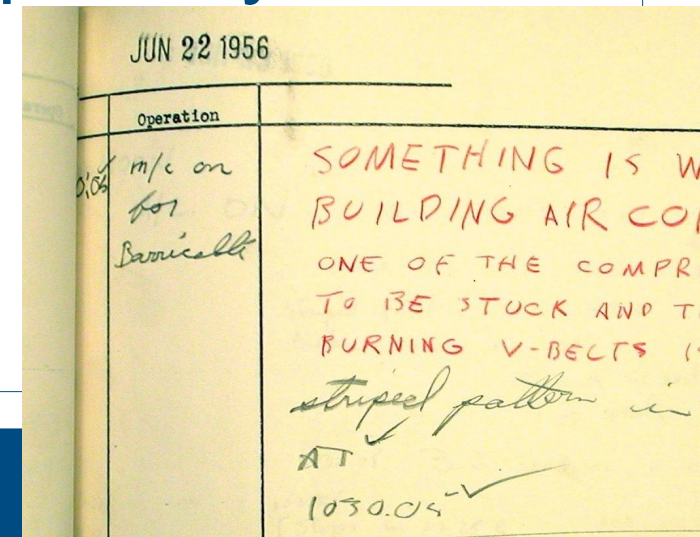 JUN 22 1956
Operation
m/c on
for
Barricelli
SOMETHING IS W
BUILDING AIR CO
ONE OF THE COMPR
TO BE STUCK AND T
BURNING V-BELTS I
striped pattern in
AT ✓
1030.05 ✓